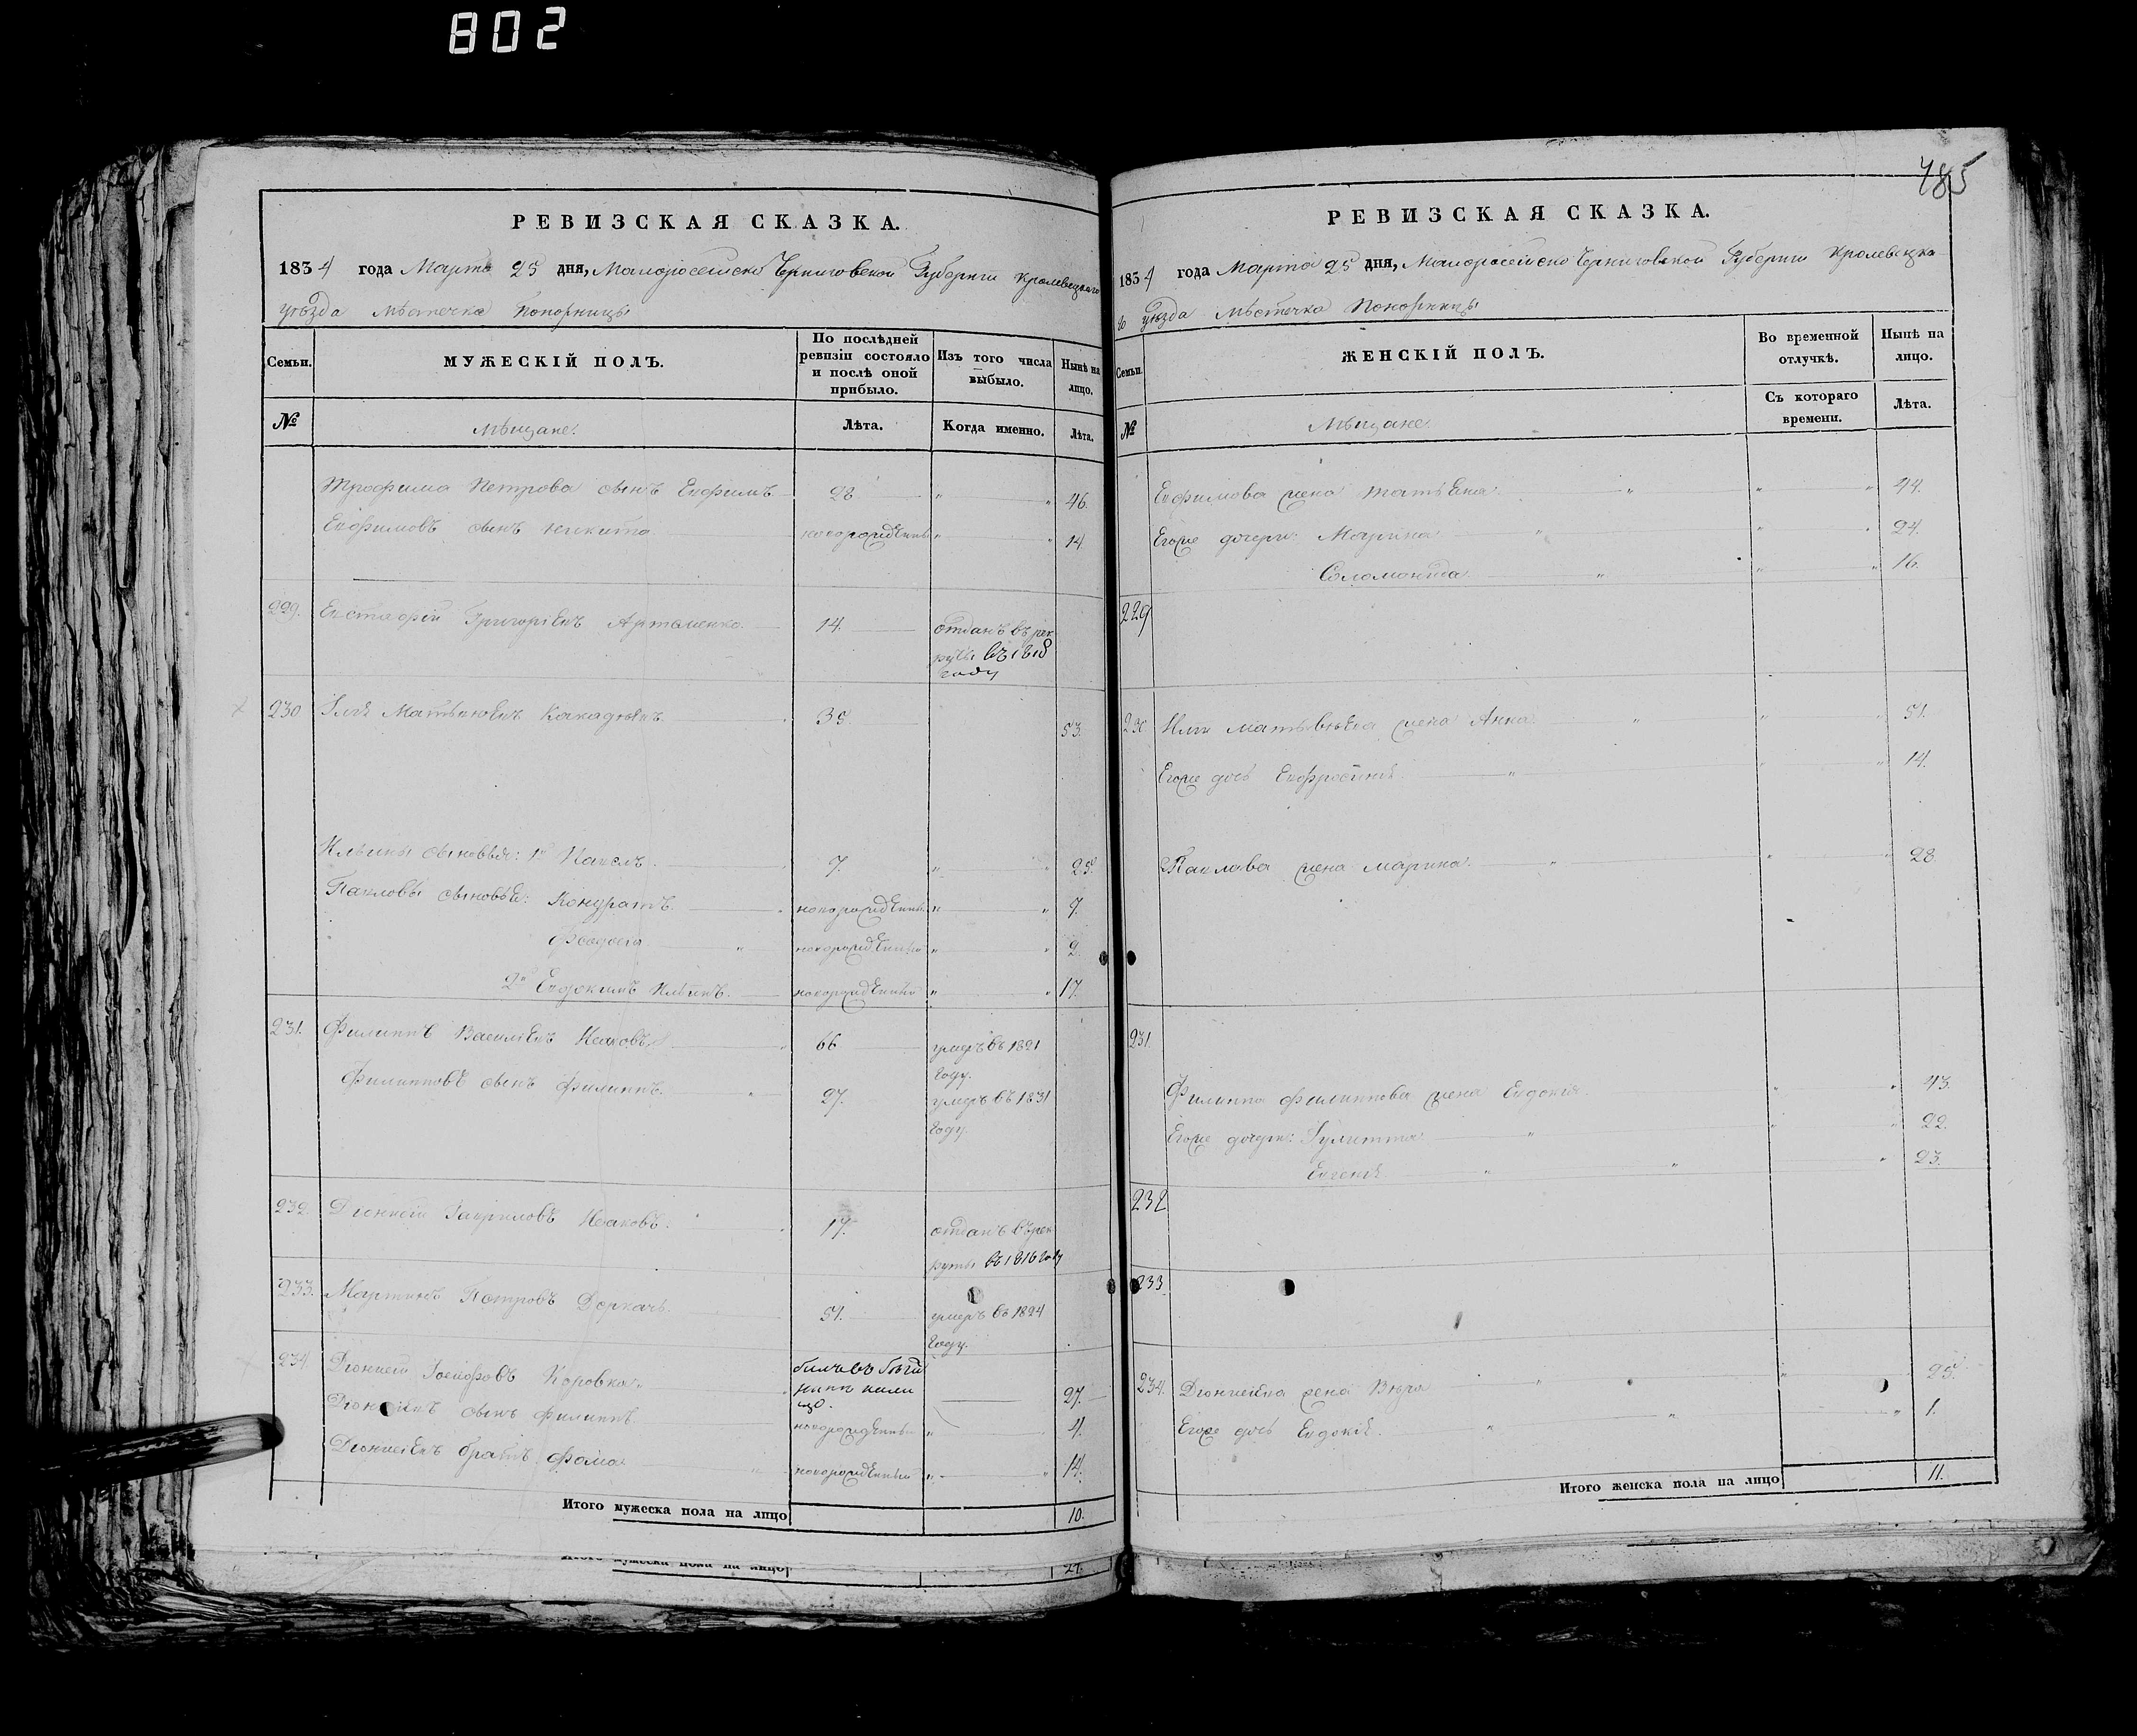 802
РЕВИЗСКАЯ СКАЗКА.
1834 года Марта 25 дня, Малоросейско Черниговской Губернги Кролевецкаго
уѣзда мѣстечка Понорницы
Семьи.
МУЖЕСКІЙ ПОЛЪ.
По послѣдней ревизіи состояло и послѣ оной прибыло.
Изъ того числа выбыло.
Нынѣ на лицо.
№
Мѣщане.
Лѣта.
Когда именно.
Лѣта.
Трофима Петрова сынъ Евфимъ 28 " " 46.
Евфимовъ сынъ Никита новорожденный " " 14
229. Евстафій Григоріевъ Артеменко. 14. отданъ въ рек
руты въ 1818
году
230 Илія Матвѣювъ 35. 53.
Ильины сыновья: 1й Павелъ. 7. " " 25.
Павловы сыновья: Кондратъ. новорожденный " " 7.
Феодосій " новорожденный " " 2.
2й Евфимъ Ильинъ. новорожденный " " 17.
231. Филиппъ Василіевъ Исаковъ 66 умеръ въ 1821
году.
Филипповъ сынъ Филиппъ. " 27. умеръ въ 1831
году.
232. Діонисій Гавриловъ Исаковъ. 17. отданъ въ рек
руты въ 1816 году
233. Мартинъ Петровъ Деркачь. 51. умеръ въ 1824
году.
234 Діонисій Іосифовъ Коровка. былъ въ
27.
Діонисіевъ сынъ Филиппъ новорожденный " 4.
Діонисіевъ братъ Фома " новорожденный " " 14.
Итого мужеска пола на лицо 10.
Итого мужеска пола на лицо 27.
485
РЕВИЗСКАЯ СКАЗКА.
1834 года Марта 25 дня, Малоросейско Черниговской Губернги Кролевецка
го уѣзда мѣстечка Понорницы
Семьи.
ЖЕНСКІЙ ПОЛЪ.
Во временной отлучкѣ.
Нынѣ на лицо.
№
Мѣщане
Съ котораго времени.
Лѣта.
Евфимова жена Татьяна " " " 44.
Егоже дочери: Марина " " " 24.
Соломонида " " " 16.
229
230 Иліи Матвѣева жена Анна " " " 51.
Егоже дочь Евфросинія. " " " 14.
Павлова жена Марина. " " " 28
231.
Филиппа Филиппова жена Евдокія. " " 43.
Егоже дочери: Гулитта " " " 22.
Евгенія. " " " 23.
232
233
234. Діонисіева жена Вѣра " " 25.
Егоже дочь Евдокія. " " " 1.
Итого женска пола на лицо 11.